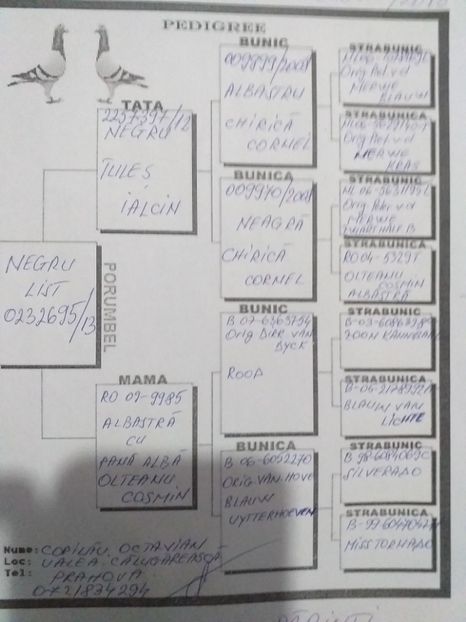 PEDIGREE
NEGRU
LIST
0232695/13
PORUMBEL
TATA
2257397/12
NEGRU
ȚULEȘ
IALCIN
MAMA
RO 09-9985
ALBASTRĂ
CU
PANĂ ALBĂ
OLTEANU
COSMIN
BUNIC
009899/2008
ALBASTRU
CHIRICĂ
CORNEL
BUNICA
009970/2008
NEAGRĂ
CHIRICĂ
CORNEL
BUNIC
B 07-6363754
Orig DIRK VAN
DYCK
ROOD
BUNICA
B 06-6052270
ORIG. VAN HOVE
BLAUW
UYTTERHOEVEN
STRABUNIC
Orig Pet. v d
MERWE
BLAUW
STRABUNICA
Orig Pet. v d
MERWE
KRAS
STRABUNIC
Orig Peter v d
MERWE
STRABUNICA
RO 04-
OLTEANU
COSMIN
ALBASTRĂ
STRABUNIC
ZOON KANNIBAAL
STRABUNICA
BLAUW VAN
LICHTE
STRABUNIC
SILVERADO
STRABUNICA
MISS TORNADO
Nume: COPILĂU OCTAVIAN
Loc: VALEA CĂLUGĂREASCĂ
Tel: PRAHOVA
0721834294